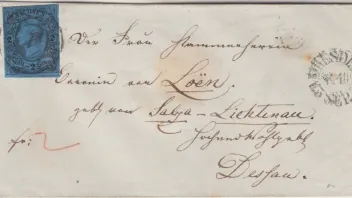 Der Frau Kammerherrin
Baronin von Loën
geb. von Salza - Lichtenau.
Hochwohlgeb.
fr:
Dessau.
DRESDEN